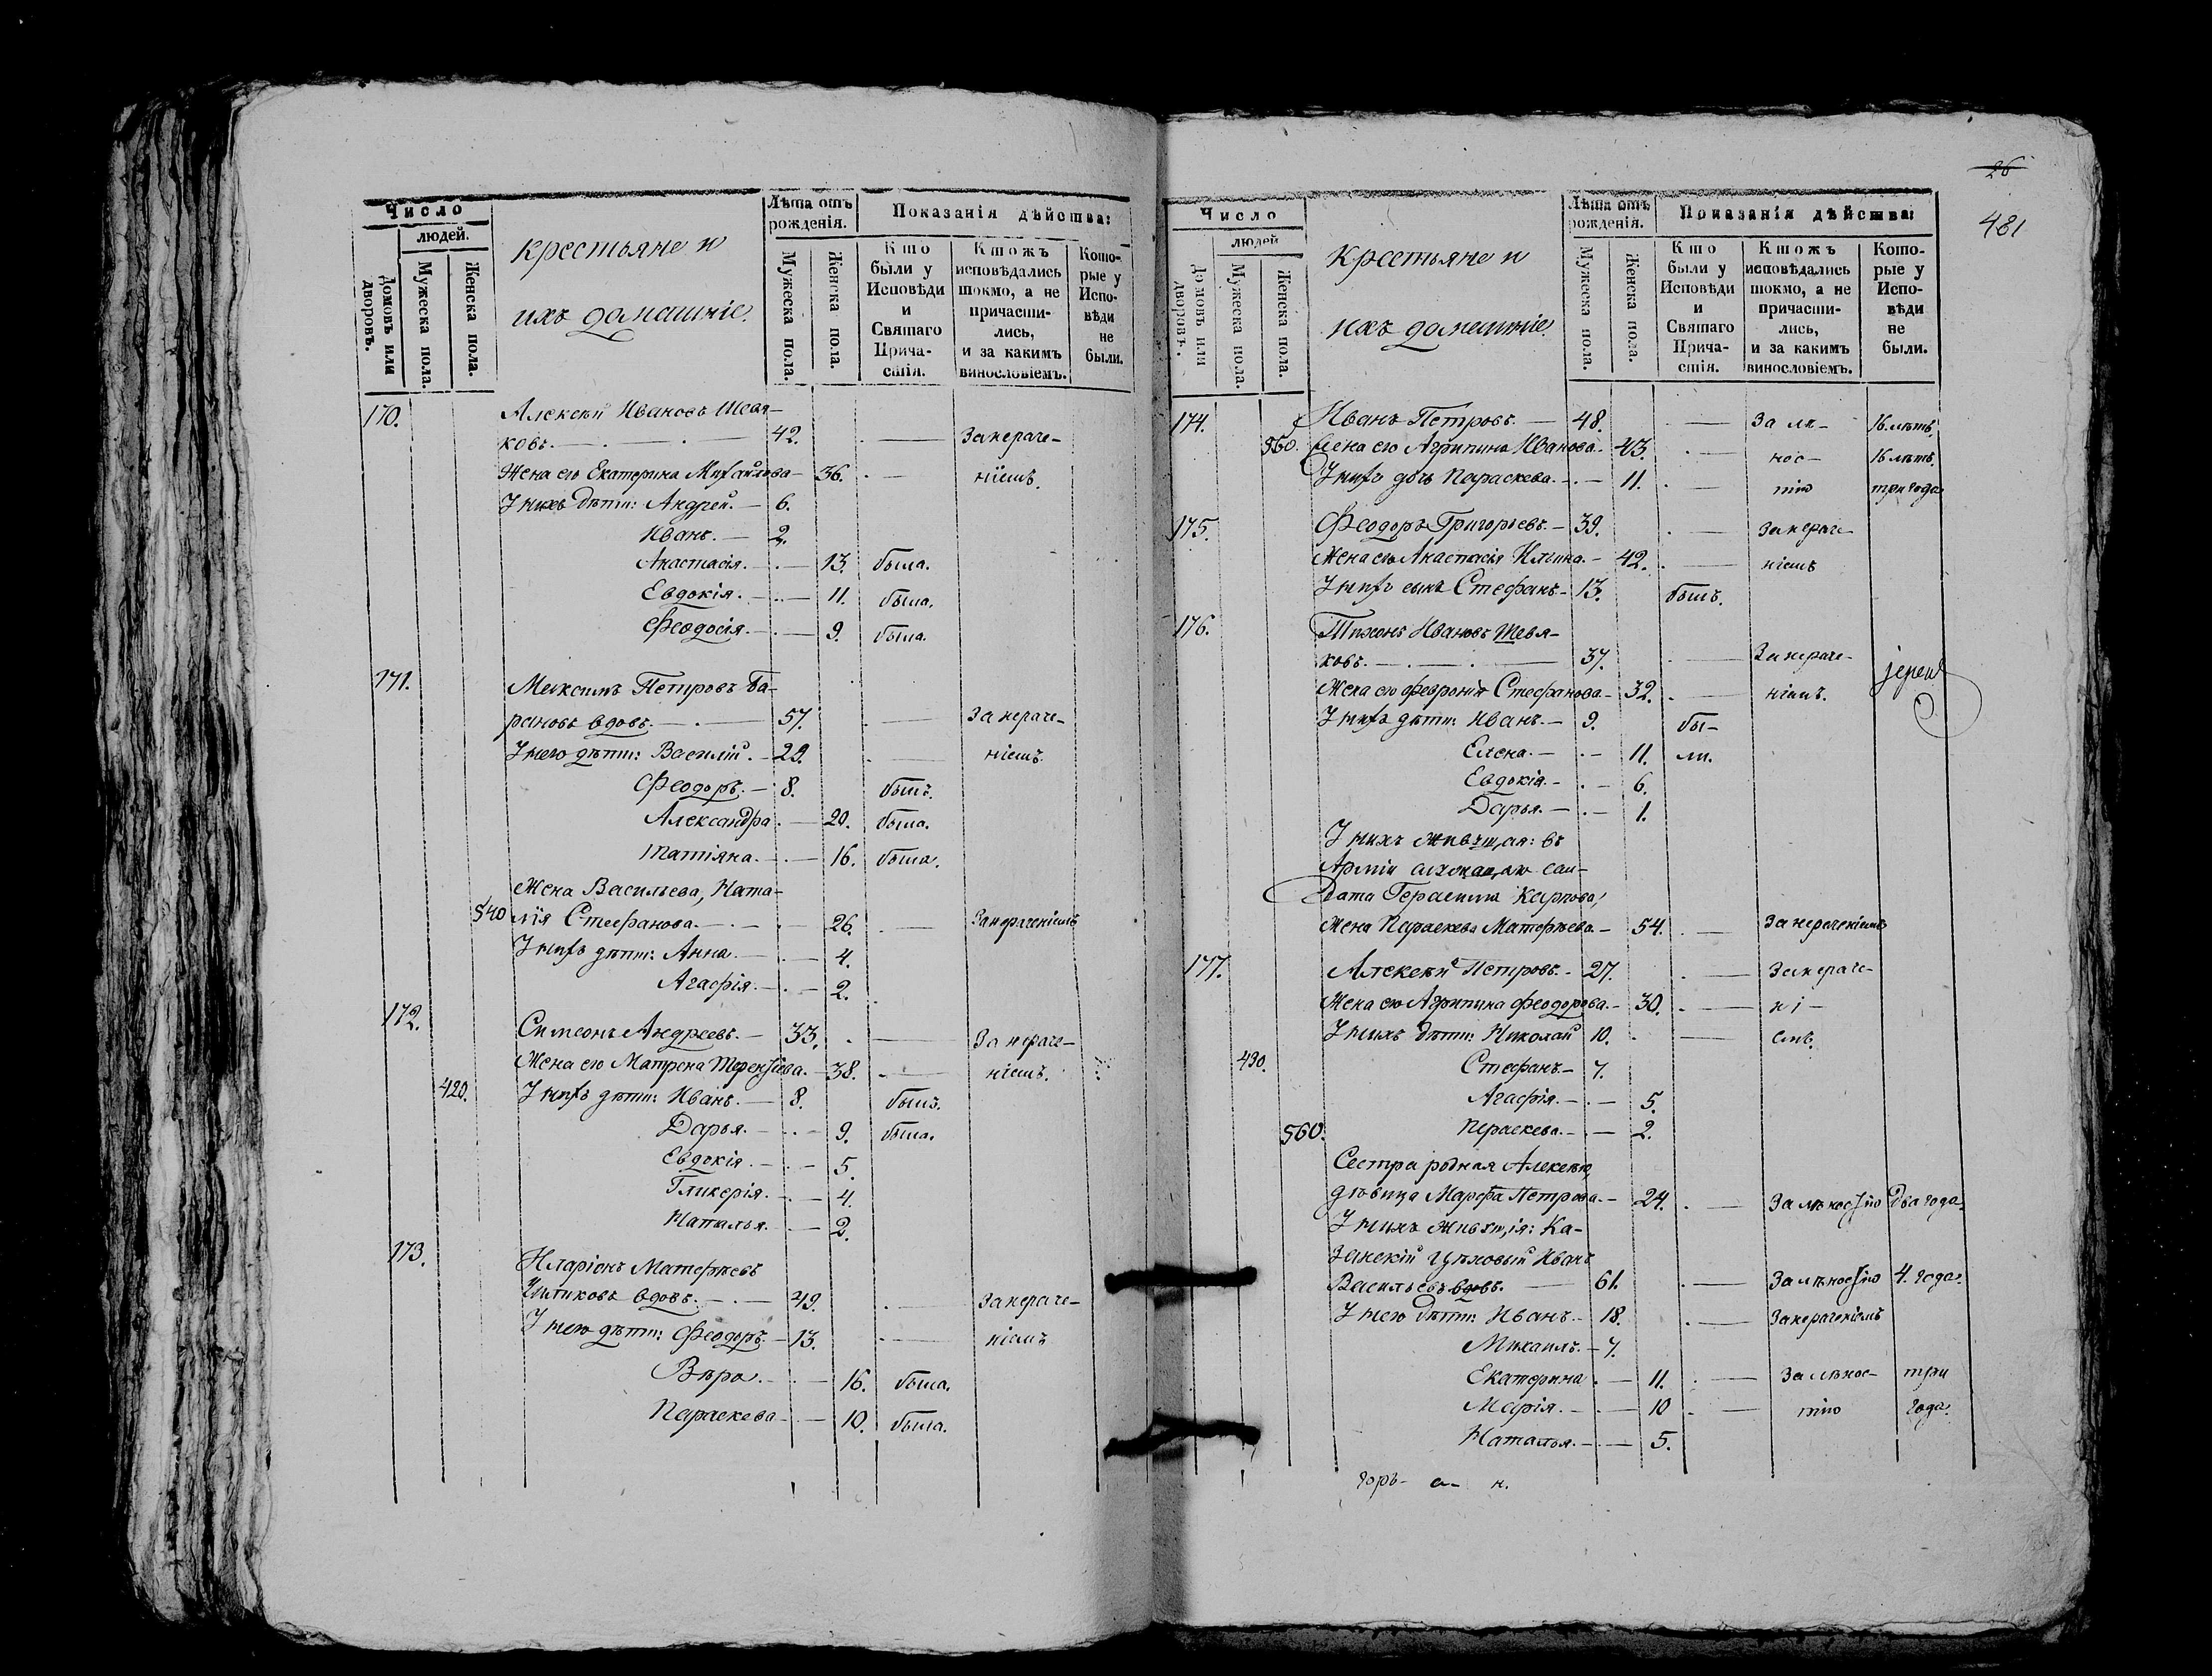 Число
людей.
Домовъ или дворовъ.
Мужеска пола.
Женска пола.
крестьяне и
ихъ домашніе.
Лѣта отъ рожденія.
Мужеска пола.
Женска пола.
Показанія дѣйства:
Кто были у Исповѣди и Святаго Причастія.
Ктожъ исповѣдались токмо, а не причастились, и за какимъ винословіемъ.
Которые у Исповѣди не были.
170. Алексѣй Ивановъ Шевя-
ковъ. 42. За нераче-
Жена его Екатерина Михайлова 36. ніемъ.
У нихъ дѣти: Андрей. 6.
Иванъ. 2.
Анастасія. 13. была.
Евдокія. 11. была.
Феодосія. 9. была.
171. Максимъ Петровъ Ба-
рановъ вдовъ. 57. За нераче-
У него дѣти: Василій. 29. ніемъ.
Феодоръ. 8. былъ.
Александра 20. была.
Татіяна. 16. была.
Жена Васильева, Ната-
540 лія Стефанова. 26. За нераченіемъ
У нихъ дѣти: Анна. 4.
Агафія. 2.
172. Симеонъ Андреевъ. 33. За нераче-
Жена его Матрена Терентіева. 38. ніемъ.
420. У нихъ дѣти: Иванъ. 8. былъ.
Дарья. 9. была.
Евдокія. 5.
Гликерія. 4.
Наталья. 2.
173. Иларіонъ Матфѣевъ
вдовъ. 49. За нераче-
У него дѣти: Феодоръ. 13. ніемъ
Вѣра. 16. была.
Параскева 10. была.
26
481
Число
людей
Домовъ или дворовъ.
Мужеска пола.
Женска пола.
крестьяне и
ихъ домашніе.
Лѣта отъ рожденія.
Мужеска пола.
Женска пола.
Показанія дѣйства:
Кто были у Исповѣди и Святаго Причастія.
Ктожъ исповѣдались токмо, а не причастились, и за какимъ винословіемъ.
Которые у Исповѣди не были.
174. Иванъ Петровъ. 48. За лѣ- 16 лѣтъ.
550. Жена его Агрипина Иванова. 43. нос- 16 лѣтъ.
У нихъ дочь Параскева. 11. тію три года
175. Феодоръ Григорьевъ. 39. За нераче-
Жена его Анастасія Ильина. 42. ніемъ
У нихъ сынъ Стефанъ 13. былъ.
176. Тихонъ Ивановъ Шевя-
ковъ. 37. За нераче-
іерей
Жена его Феврония Стефанова 32. ніемъ.
У нихъ дѣти: Иванъ. 9. бы-
Елена. 11. ли.
Евдокія. 6.
Дарья. 1.
У нихъ живущая: въ
Арміи сол-
дата Герасима Карпова,
Жена Параскева Матфѣева 54. За нераченіемъ
177. Алексѣй Петровъ. 27. За нераче-
Жена его Агрипина Феодорова. 30. ні-
У нихъ дѣти: Николай 10. емъ.
430. Стефанъ. 7.
Агафія. 5.
560. Параскева. 2.
Сестра родная Алексѣю,
дѣвица Марфа Петрова. 24. За лѣностію два года.
У нихъ живущія: Ка-
занскій цѣховый Иванъ
Васильевъ вдовъ. 61. За лѣностію 4. года.
У него дѣти: Иванъ. 18. За нераченіемъ
Михаилъ. 7.
Екатерина 11. За лѣнос- три
Марія. 10 тію года.
Наталья. 5.